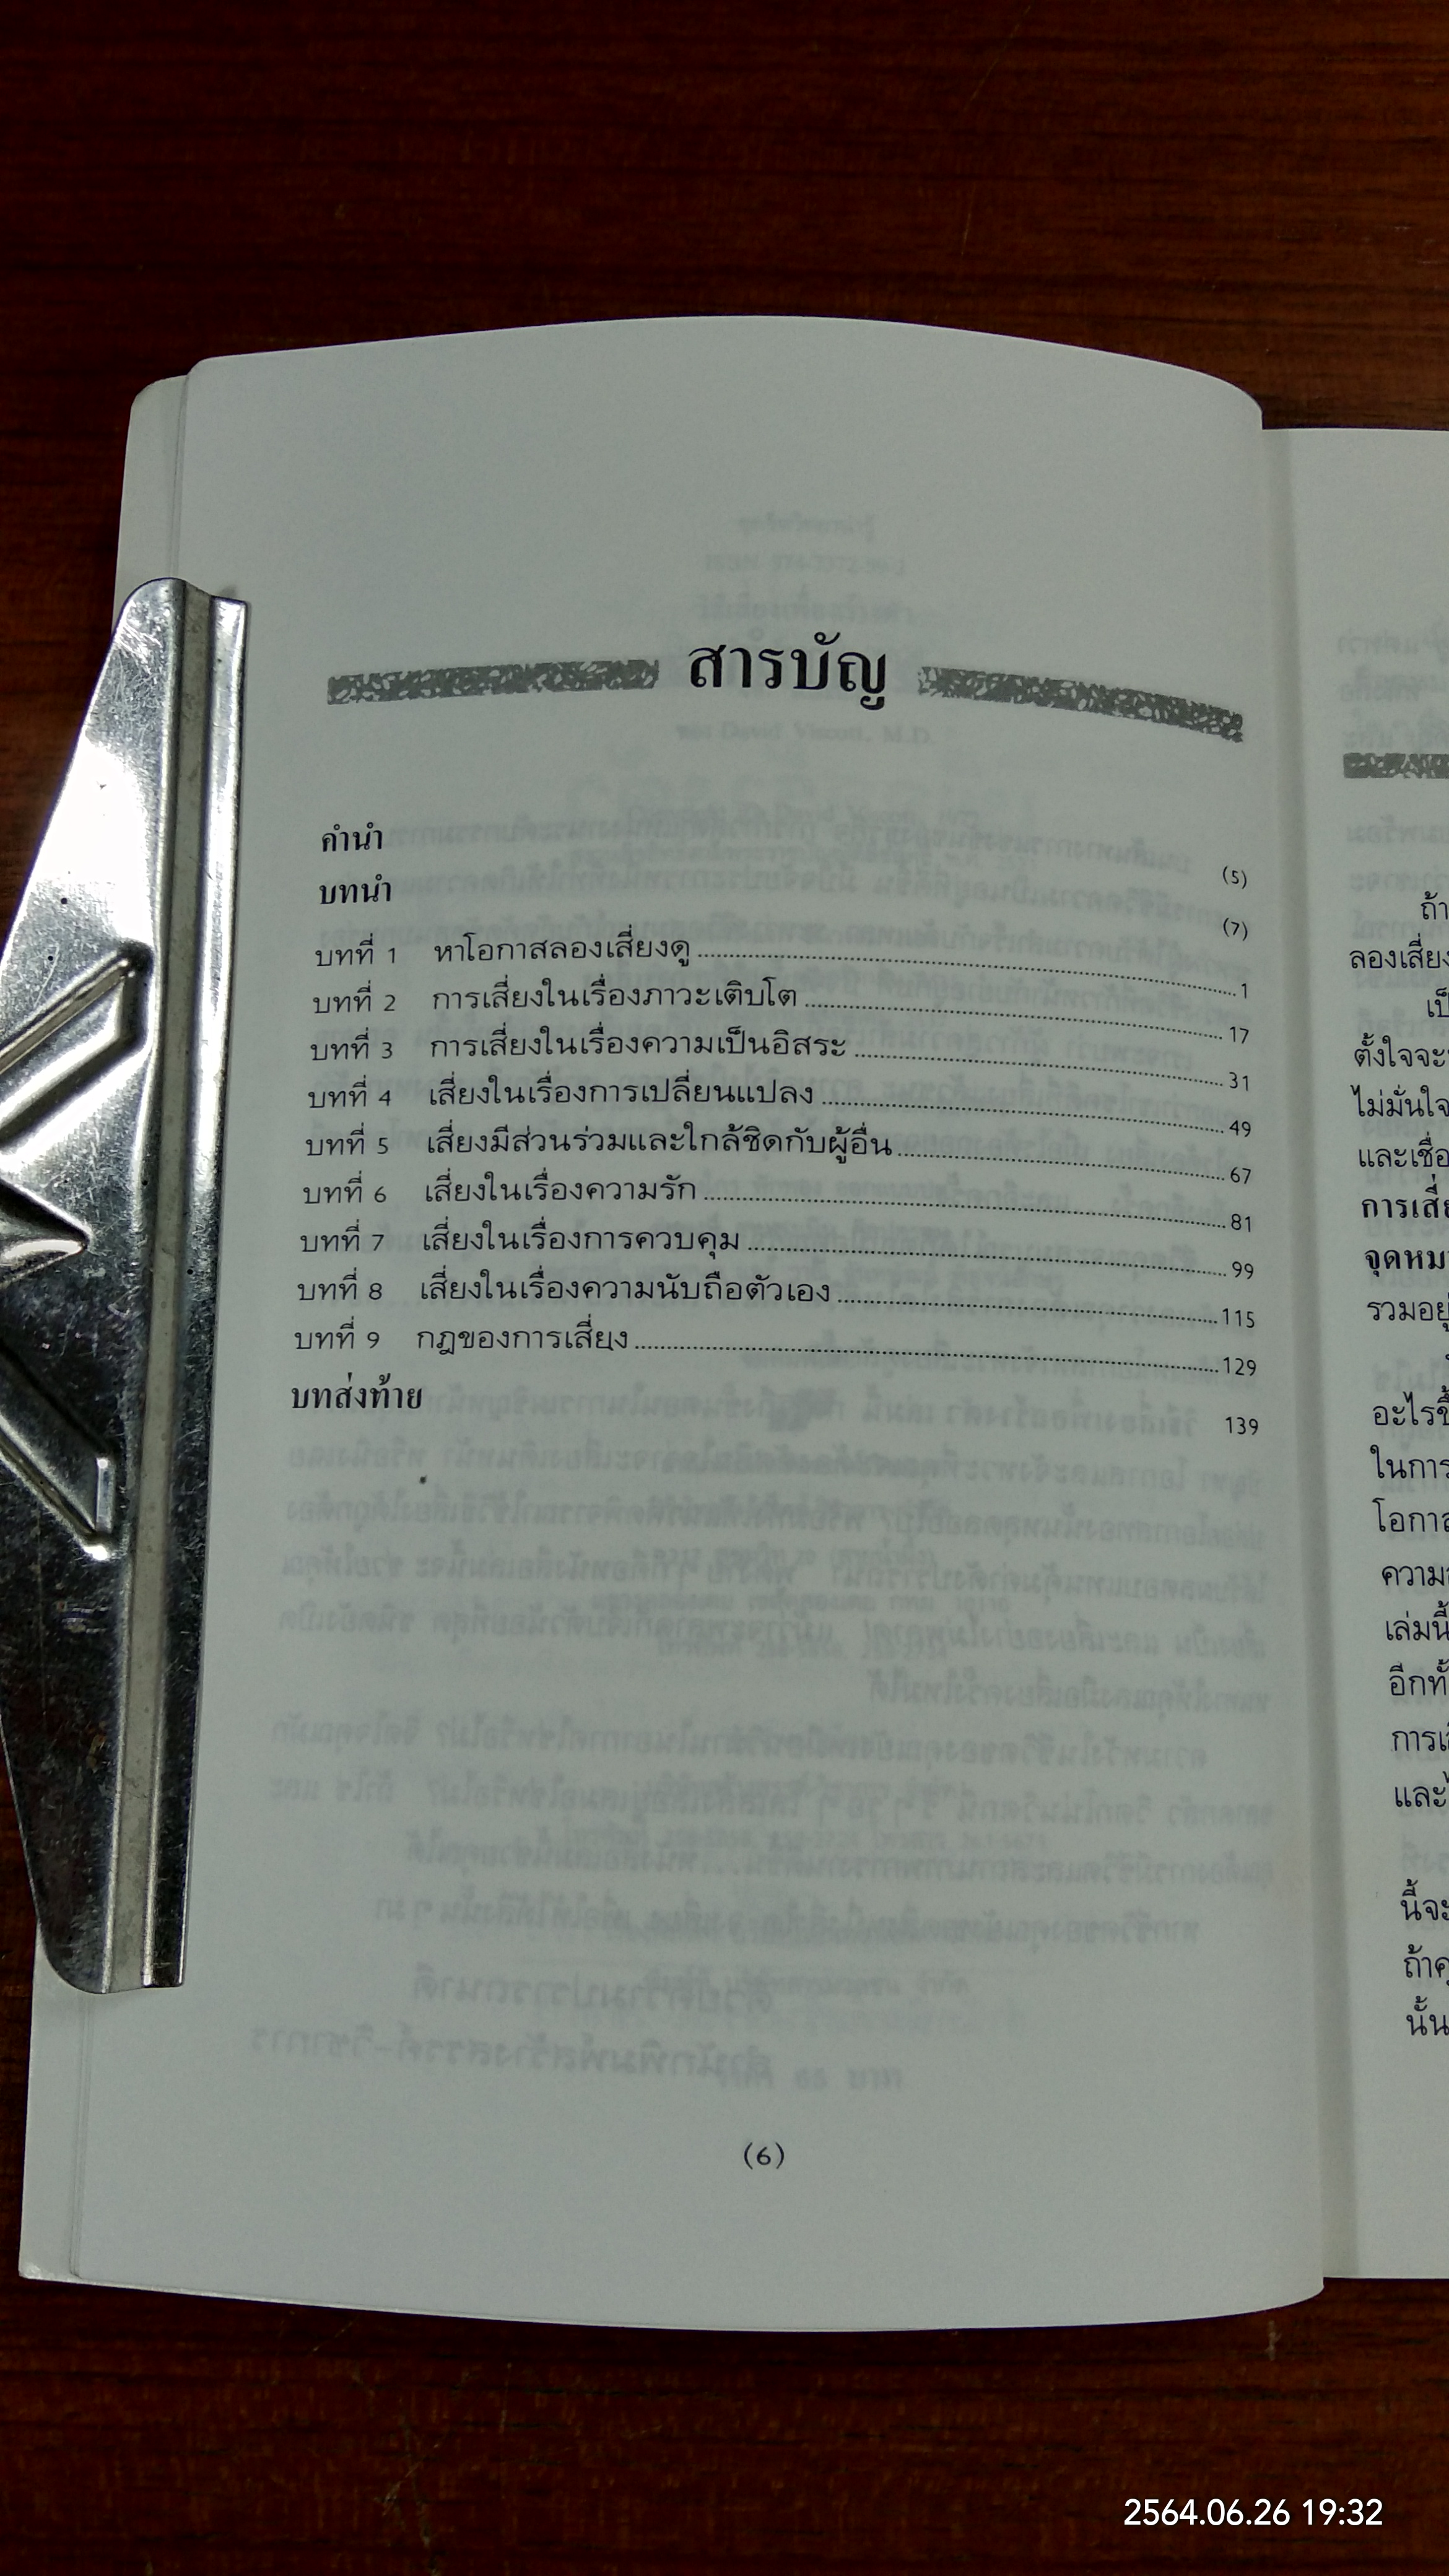 สารบัญ
คำนำ (5)
บทนำ (7)
บทที่ 1 หาโอกาสลองเสี่ยงดู 1
บทที่ 2 การเสี่ยงในเรื่องภาวะเติบโต 17
บทที่ 3 การเสี่ยงในเรื่องความเป็นอิสระ 31
บทที่ 4 เสี่ยงในเรื่องการเปลี่ยนแปลง 49
บทที่ 5 เสี่ยงมีส่วนร่วมและใกล้ชิดกับผู้อื่น 67
บทที่ 6 เสี่ยงในเรื่องความรัก 81
บทที่ 7 เสี่ยงในเรื่องการควบคุม 99
บทที่ 8 เสี่ยงในเรื่องความนับถือตัวเอง 115
บทที่ 9 กฎของการเสี่ยง 129
บทส่งท้าย 139
(6)
ถ้า
ลองเสี่ยง
ตั้งใจจะ
ไม่มั่นใจ
และเชื่อ
รวมอยู่
ในการ
เล่มนี้
และ
นี้จะ
นั้น
2564.06.26 19:32